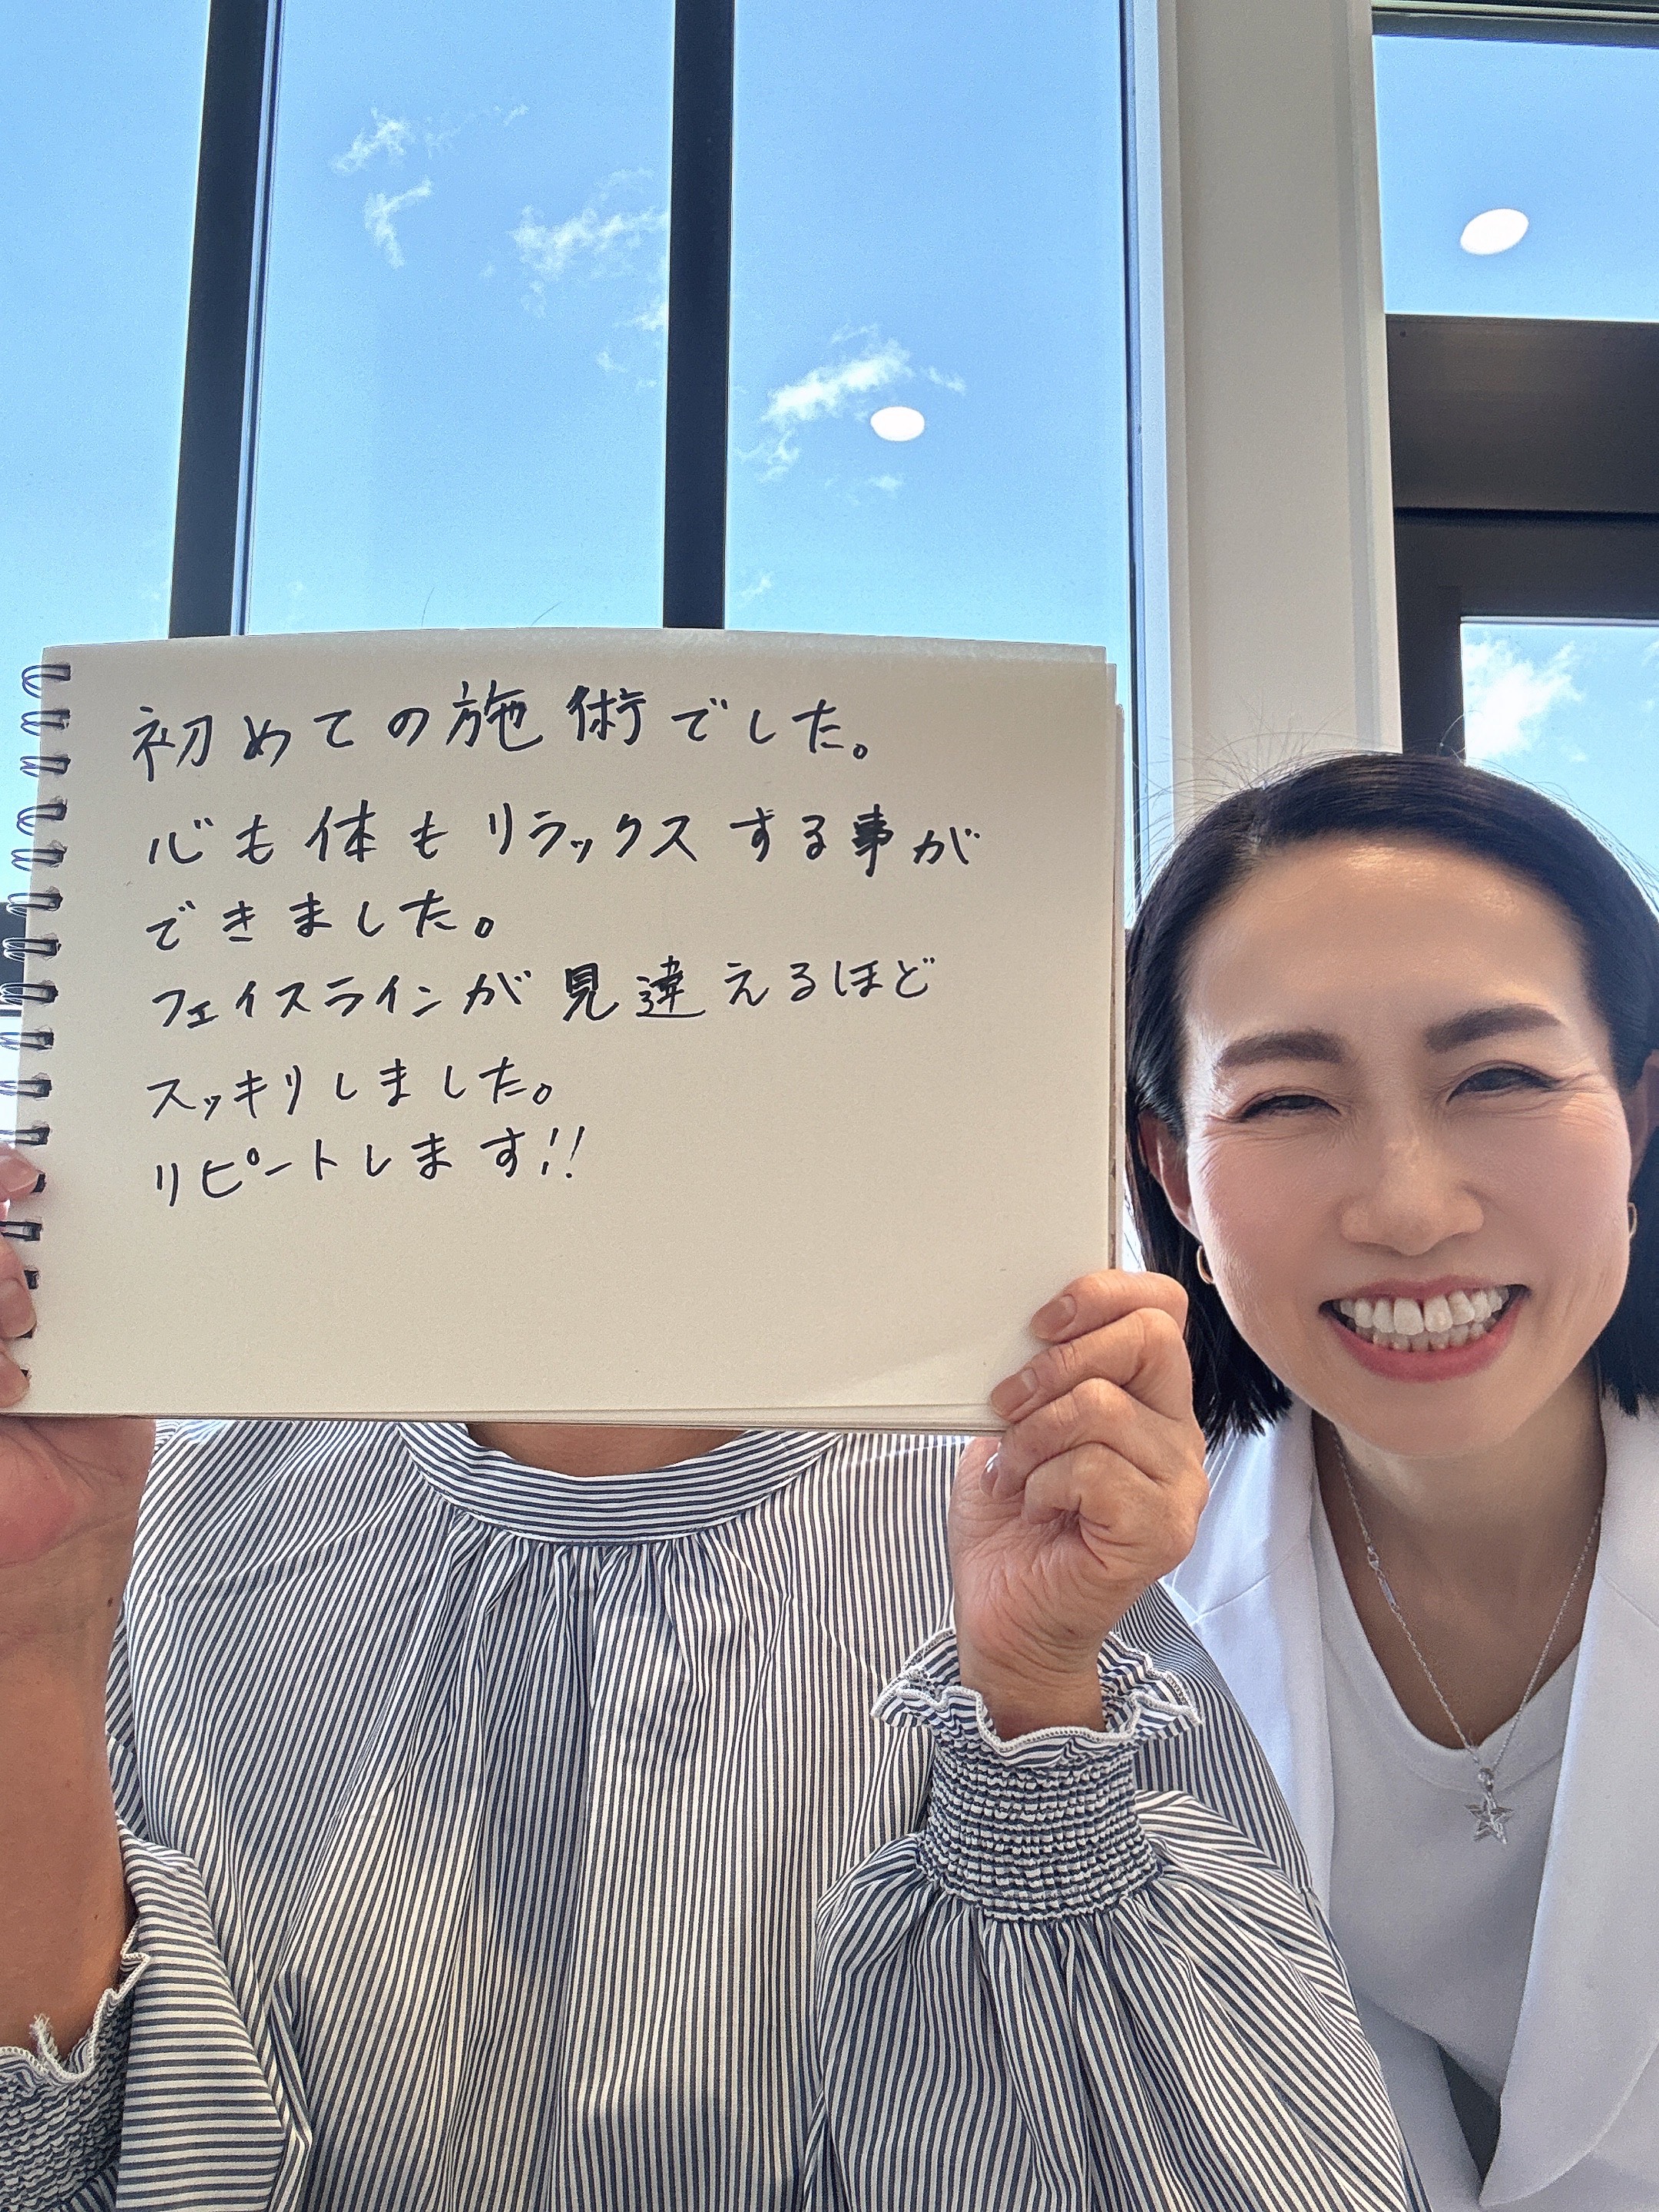 初めての施術でした。
心も体もリラックスする事が
できました。
フェイスラインが見違えるほど
スッキリしました。
リピートします!!